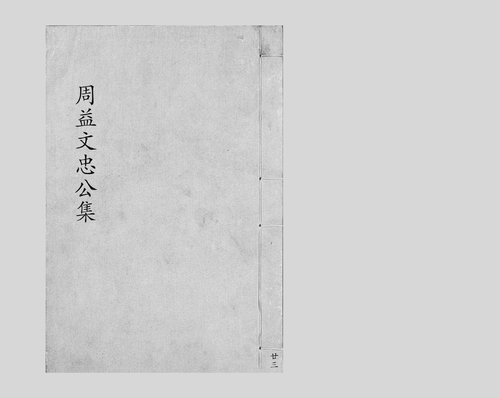 周益文忠公集
廿三